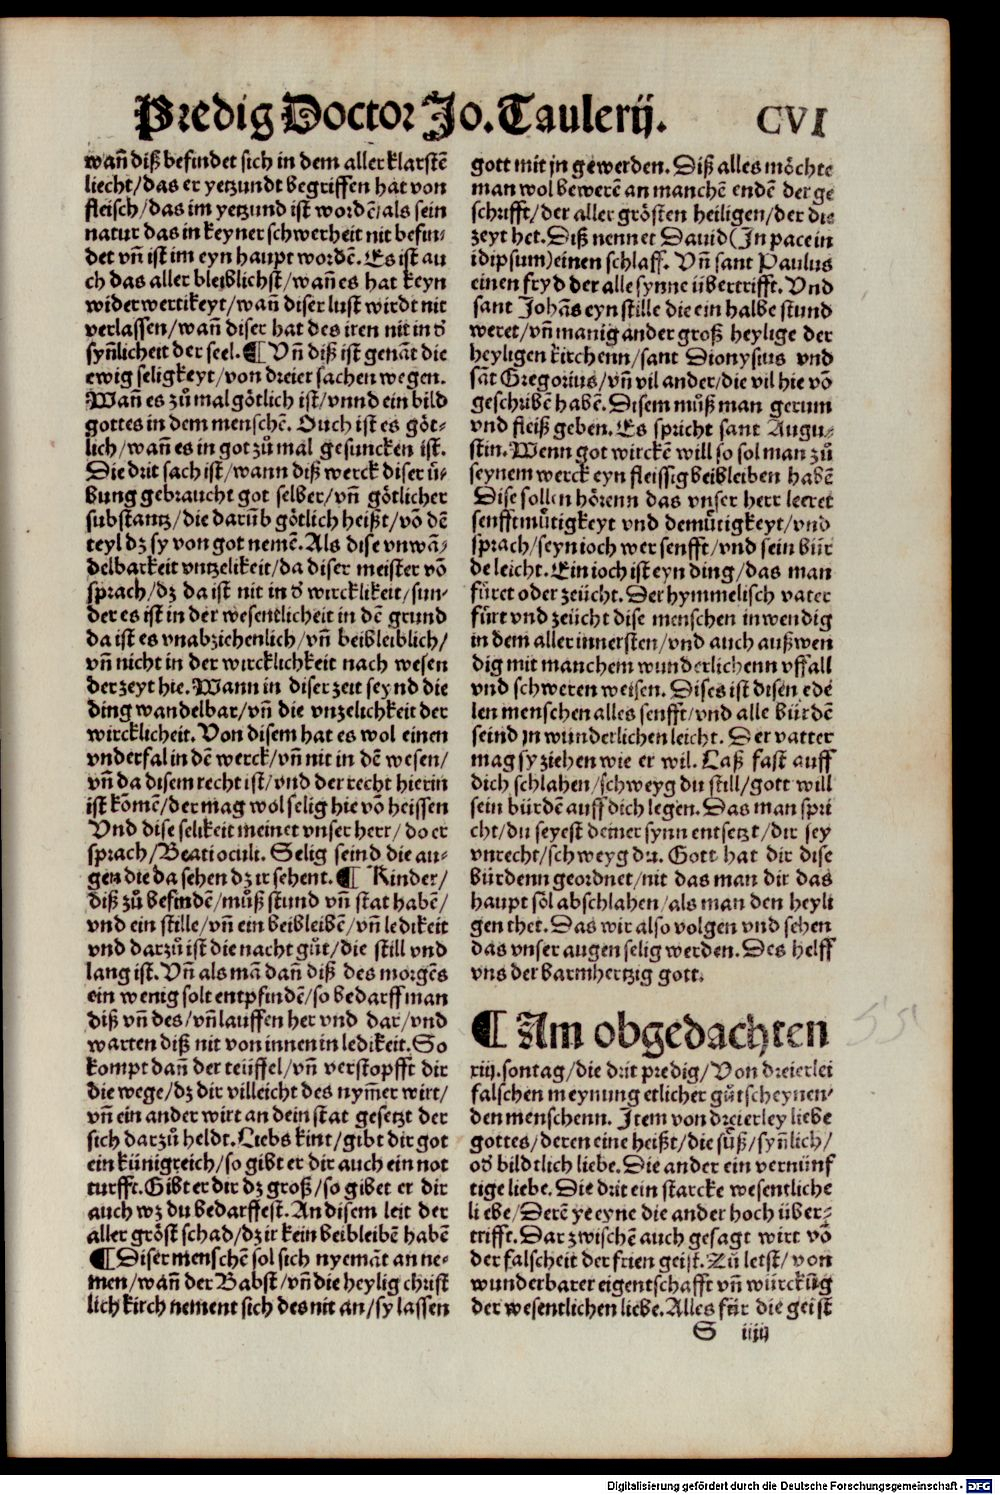 Predig Doctor Jo. Taulerij.
CVI
wañ diß befindet sich in dem aller klarstē
liecht/das er yetzundt begriffen hat von
fleisch/das im yetzund ist wordē/als sein
natur das in keyner schwerheit nit befin-
det vñ ist im eyn haupt wordē. Es ist au
ch das aller bleiblichst/wañ es hat keyn
widerwertikeyt/wañ diser lust wirdt nit
verlassen/wañ diser hat des iren nit in d̄
syñlicheit der seel. ¶ Vñ diß ist genāt die
ewig seligkeyt/von dreier sachen wegen.
Wañ es zů mal götlich ist/vnnd ein bild
gottes in dem menschē. Ouch ist es göt-
lich/wañ es in got zů mal gesuncken ist.
Die drit sach ist/wann diß werck diser ü-
bung gebraucht got selber/vñ götlicher
substantz/die darūb götlich heißt/vō dē
teyl dz sy von got nemē. Als dise vnwā-
delbarkeit vntzelikeit/da diser meister vō
sprach/dz da ist nit in d̄ wircklikeit/sun-
der es ist in der wesentlicheit in dē grund
da ist es vnabziehenlich/vñ beibleiblich/
vñ nicht in der wircklichkeit nach wesen
der zeyt hie. Wann in diser zeit seynd die
ding wandelbar/vñ die vnzelichkeit der
wircklicheit. Von disem hat es wol einen
vnderfal in dē werck/vñ nit in dē wesen/
vñ da disem recht ist/vnd der recht hierin
ist kōmē/der mag wol selig hie vō heissen
Vnd dise selikeit meinet vnser herr/do er
sprach/Beati oculi. Selig seind die au-
gen die da sehen dz ir sehent. ¶ Kinder/
diß zů befindē/můß stund vñ stat habē/
vnd ein stille/vñ ein beibleibē/vñ ledikeit
vnd darzů ist die nacht gůt/die still vnd
lang ist. Vñ als mā dañ diß des morgēs
ein wenig solt entpfindē/so bedarff man
diß vñ des/vñ lauffen her vnd dar/vnd
warten diß nit von innen in ledikeit. So
kompt dañ der teüffel/vñ verstopfft dir
die wege/dz dir villeicht des nym̄er wirt/
vñ ein ander wirt an dein stat gesetzt der
sich darzů heldt. Liebs kint/gibt dir got
ein künigreich/so gibt er dir auch ein not
turfft. Gibt er dir dz groß/so gibet er dir
auch wz du bedarffest. An disem leit der
aller gröst schad/dz ir kein beibleibē habē
¶ Diser menschē sol sich nyemāt an ne-
men/wañ der Babst/vñ die heylig christ
lich kirch nement sich des nit an/sy lassen
gott mit jn gewerden. Diß alles möchte
man wol bewerē an manchē endē der ge
schrifft/der aller grösten heiligen/der die
zeyt het. Diß nennet David (In pace in
idipsum) einen schlaff. Vñ sant Paulus
einen fryd der alle synne übertrifft. Vnd
sant Johās eyn stille die ein halbe stund
weret/vñ manig ander groß heylige der
heyligen kirchenn/sant Dionysius vnd
sāt Gregorius/vñ vil ander/die vil hie vō
geschribē habē. Disem můß man gerum
vnd fleiß geben. Es spricht sant Augu-
stin. Wenn got wirckē will so sol man zů
seynem werck eyn fleissig beibleiben habē
Dise sollen hörenn das vnser herr leeret
senfftmůtigkeyt vnd demůtigkeyt/vnd
sprach/seyn ioch wer senfft/vnd sein bür
de leicht. Ein ioch ist eyn ding/das man
füret oder zeücht. Der hymmelisch vater
fürt vnd zeücht dise menschen inwendig
in dem aller innersten/vnd auch außwen
dig mit manchem wunderlichenn vffall
vnd schweren weisen. Dises ist disen edē
len menschen alles senfft/vnd alle bürdē
seind jn wunderlichen leicht. Der vatter
mag sy ziehen wie er wil. Laß fast auff
dich schlahen/schweyg du still/gott will
sein bürdē auff dich legen. Das man spri
cht/du seyest deiner synn entsetzt/dir sey
vnrecht/schweyg du. Gott hat dir dise
bürdenn geordnet/nit das man dir das
haupt söl abschlahen/als man den heyli
gen thet. Das wir also volgen vnd sehen
das vnser augen selig werden. Des helff
vns der barmhertzig gott.
¶ Am obgedachten
xiij. sontag/die drit predig/Von dreierlei
falschen meynung etlicher gůtscheynen-
den menschenn. Item von dreierley liebe
gottes/deren eine heißt/die süß/syñlich/
od̄ bildtlich liebe. Die ander ein vernünf
tige liebe. Die drit ein starcke wesentliche
liebe/Derē ye eyne die ander hoch über-
trifft. Dar zwischē auch gesagt wirt vō
der falscheit der frien geist. Zů letst/von
wunderbarer eigentschafft vñ würckūg
der wesentlichen liebe. Alles für die geist
S iiij
55
Digitalisierung gefördert durch die Deutsche Forschungsgemeinschaft - DFG